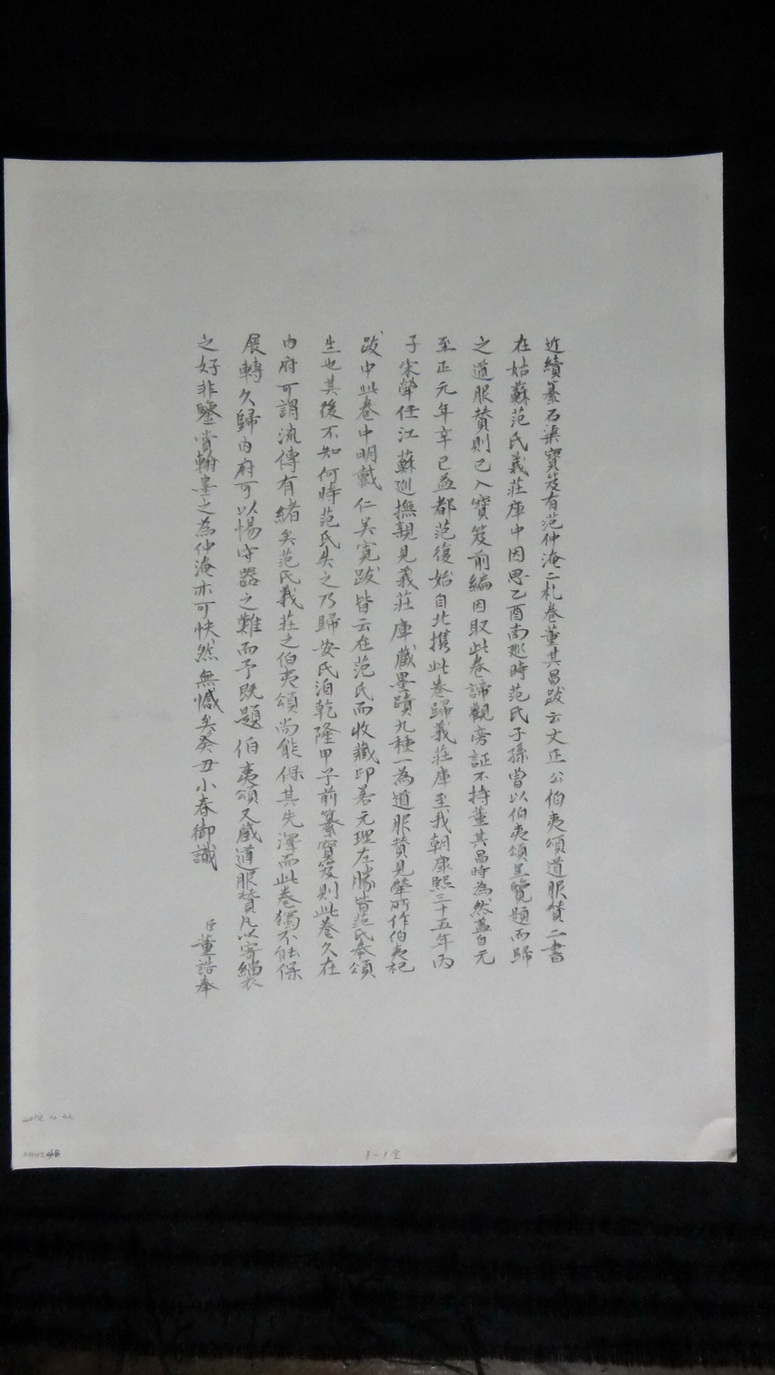 近續纂石渠寶笈有范仲淹二札卷董其昌跋云文正公伯夷頌道服贊二書
在姑蘇范氏義莊庫中因思乙酉南廵時范氏子孫曾以伯夷頌呈覽題而歸
之道服贊則已入寶笈前編因取此卷諦觀旁証不持董其昌時為然蓋自元
至正元年辛巳益都范復始自北携此卷歸義莊庫至我朝康熙三十五年丙
子宋犖任江蘇廵撫親見義莊庫藏墨蹟九種一為道服贊見犖所作伯夷祀
跋中此卷中明戴仁吳寛跋皆云在范氏而收藏印若元理左勝皆范氏奉頌
生也其後不知何時范氏失之乃歸安氏洎乾隆甲子前纂寶笈則此卷久在
内府可謂流傳有緒矣范氏義莊之伯夷頌尚能保其先澤而此卷獨不能保
展轉久歸内府可以惕守器之難而予既題伯夷頌又識道服贊凡以寄緇衣
之好非鑒賞翰墨之為仲淹亦可快然無憾矣癸丑小春御識 臣董誥奉
48